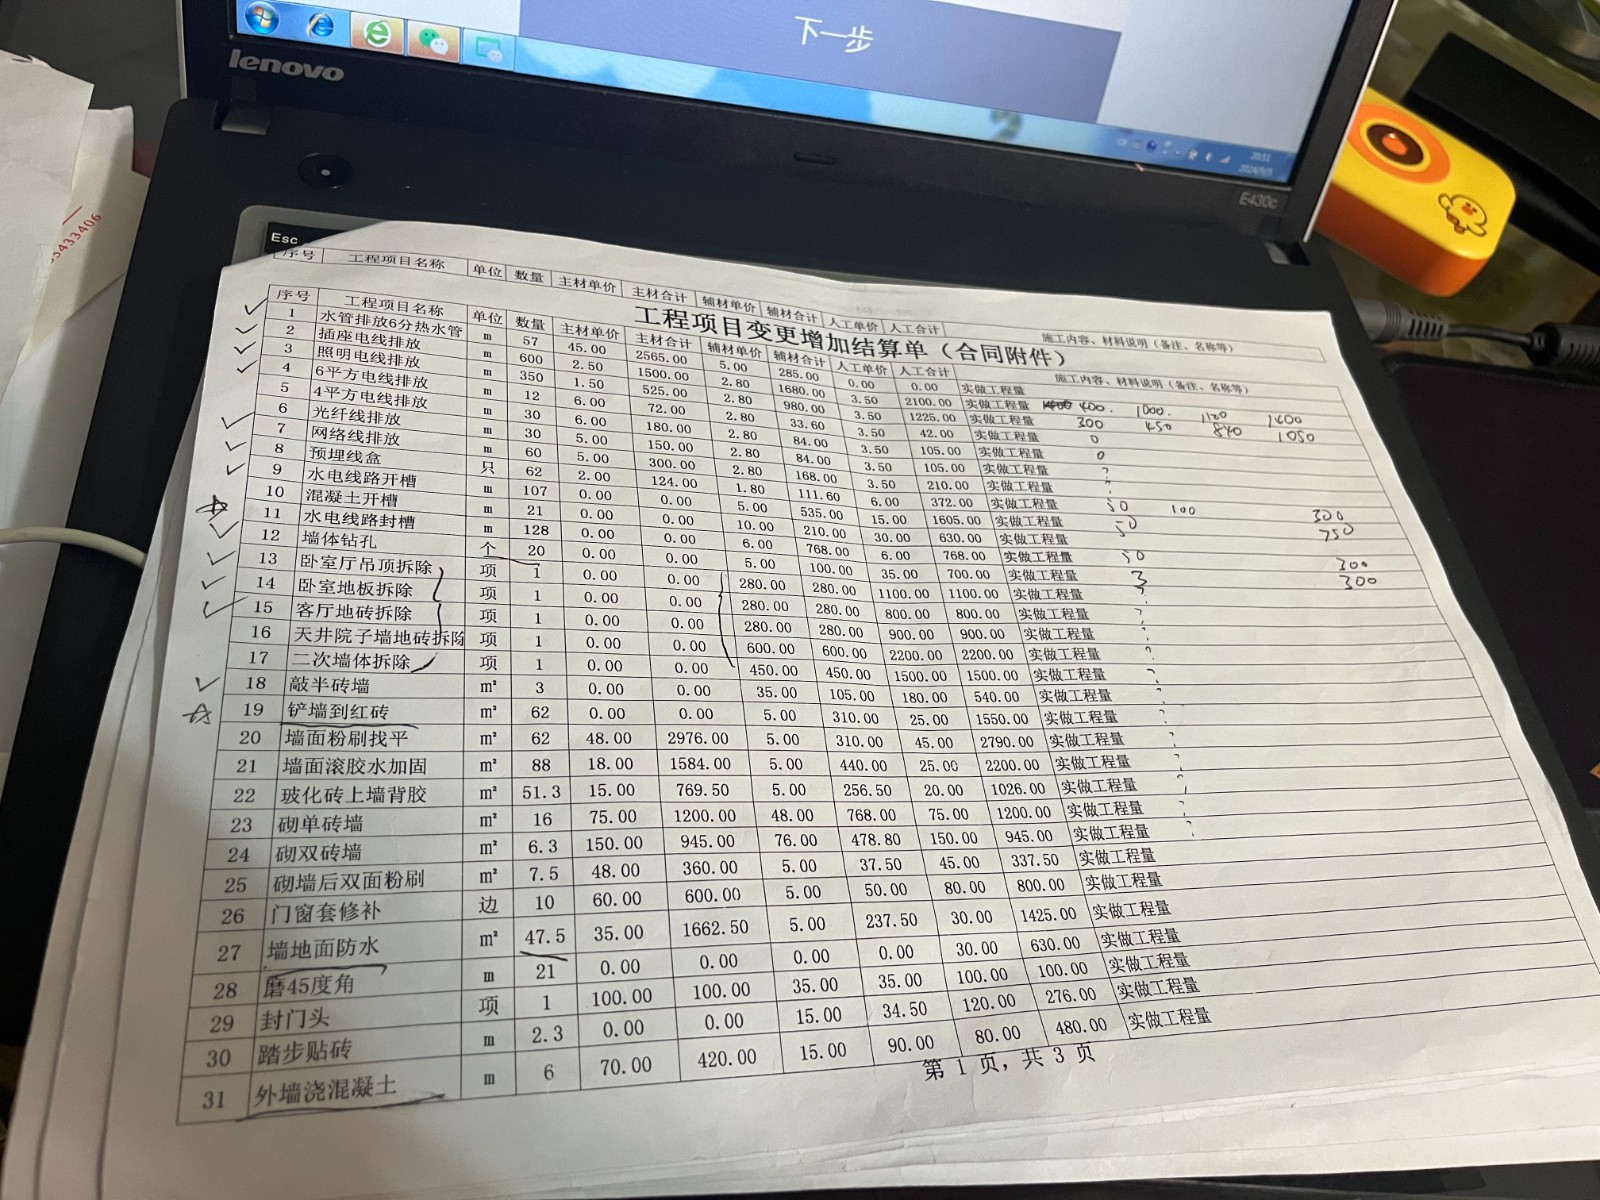 下一步
lenovo
20:51
2024/9/5
E430c
33433406
Esc
序号 工程项目名称 单位 数量 主材单价 主材合计 辅材单价 辅材合计 人工单价 人工合计 施工内容、材料说明（备注、名称等）
工程项目变更增加结算单（合同附件）
序号 工程项目名称 单位 数量 主材单价 主材合计 辅材单价 辅材合计 人工单价 人工合计 施工内容、材料说明（备注、名称等）
1 水管排放6分热水管 m 57 45.00 2565.00 5.00 285.00 0.00 0.00 实做工程量
2 插座电线排放 m 600 2.50 1500.00 2.80 1680.00 3.50 2100.00 实做工程量 400. 1000. 1120 1400
3 照明电线排放 m 350 1.50 525.00 2.80 980.00 3.50 1225.00 实做工程量 300 450 840 1050
4 6平方电线排放 m 12 6.00 72.00 2.80 33.60 3.50 42.00 实做工程量 0
5 4平方电线排放 m 30 6.00 180.00 2.80 84.00 3.50 105.00 实做工程量 0
6 光纤线排放 m 30 5.00 150.00 2.80 84.00 3.50 105.00 实做工程量 ?
7 网络线排放 m 60 5.00 300.00 2.80 168.00 3.50 210.00 实做工程量
8 预埋线盒 只 62 2.00 124.00 1.80 111.60 6.00 372.00 实做工程量 50 100 300
9 水电线路开槽 m 107 0.00 0.00 5.00 535.00 15.00 1605.00 实做工程量 50 750
10 混凝土开槽 m 21 0.00 0.00 10.00 210.00 30.00 630.00 实做工程量
11 水电线路封槽 m 128 0.00 0.00 6.00 768.00 6.00 768.00 实做工程量 50 300
12 墙体钻孔 个 20 0.00 0.00 5.00 100.00 35.00 700.00 实做工程量 3 300
13 卧室厅吊顶拆除 项 1 0.00 0.00 280.00 280.00 1100.00 1100.00 实做工程量 ?
14 卧室地板拆除 项 1 0.00 0.00 280.00 280.00 800.00 800.00 实做工程量 ?
15 客厅地砖拆除 项 1 0.00 0.00 280.00 280.00 900.00 900.00 实做工程量 ?
16 天井院子墙地砖拆除 项 1 0.00 0.00 600.00 600.00 2200.00 2200.00 实做工程量 ?
17 二次墙体拆除 项 1 0.00 0.00 450.00 450.00 1500.00 1500.00 实做工程量 ?
18 敲半砖墙 m² 3 0.00 0.00 35.00 105.00 180.00 540.00 实做工程量 ?
19 铲墙到红砖 m² 62 0.00 0.00 5.00 310.00 25.00 1550.00 实做工程量 ?
20 墙面粉刷找平 m² 62 48.00 2976.00 5.00 310.00 45.00 2790.00 实做工程量 ?
21 墙面滚胶水加固 m² 88 18.00 1584.00 5.00 440.00 25.00 2200.00 实做工程量 ?
22 玻化砖上墙背胶 m² 51.3 15.00 769.50 5.00 256.50 20.00 1026.00 实做工程量 ?
23 砌单砖墙 m² 16 75.00 1200.00 48.00 768.00 75.00 1200.00 实做工程量 ?
24 砌双砖墙 m² 6.3 150.00 945.00 76.00 478.80 150.00 945.00 实做工程量 ?
25 砌墙后双面粉刷 m² 7.5 48.00 360.00 5.00 37.50 45.00 337.50 实做工程量
26 门窗套修补 边 10 60.00 600.00 5.00 50.00 80.00 800.00 实做工程量
27 墙地面防水 m² 47.5 35.00 1662.50 5.00 237.50 30.00 1425.00 实做工程量
28 磨45度角 m 21 0.00 0.00 0.00 0.00 30.00 630.00 实做工程量
29 封门头 项 1 100.00 100.00 35.00 35.00 100.00 100.00 实做工程量
30 踏步贴砖 m 2.3 0.00 0.00 15.00 34.50 120.00 276.00 实做工程量
31 外墙浇混凝土 m 6 70.00 420.00 15.00 90.00 80.00 480.00 实做工程量
第 1 页，共 3 页